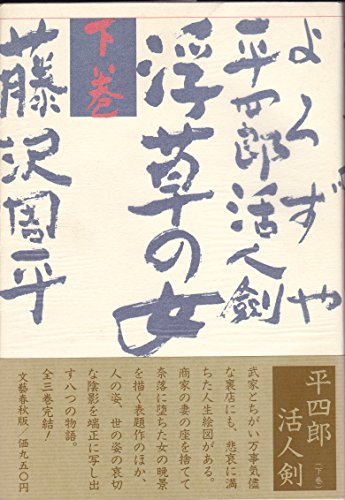 よろずや
平四郎活人剣
浮草の女
下巻
藤沢周平
平四郎
活人剣
〈下巻〉
武家とちがい万事気儘
な裏店にも、悲哀に満
ちた人生絵図がある。
商家の妻の座を捨てて
奈落に堕ちた女の晩景
を描く表題作のほか、
人の姿、世の姿の哀切
な陰影を端正に写し出
す八つの物語。
全三巻完結！
文藝春秋版/価九五〇円